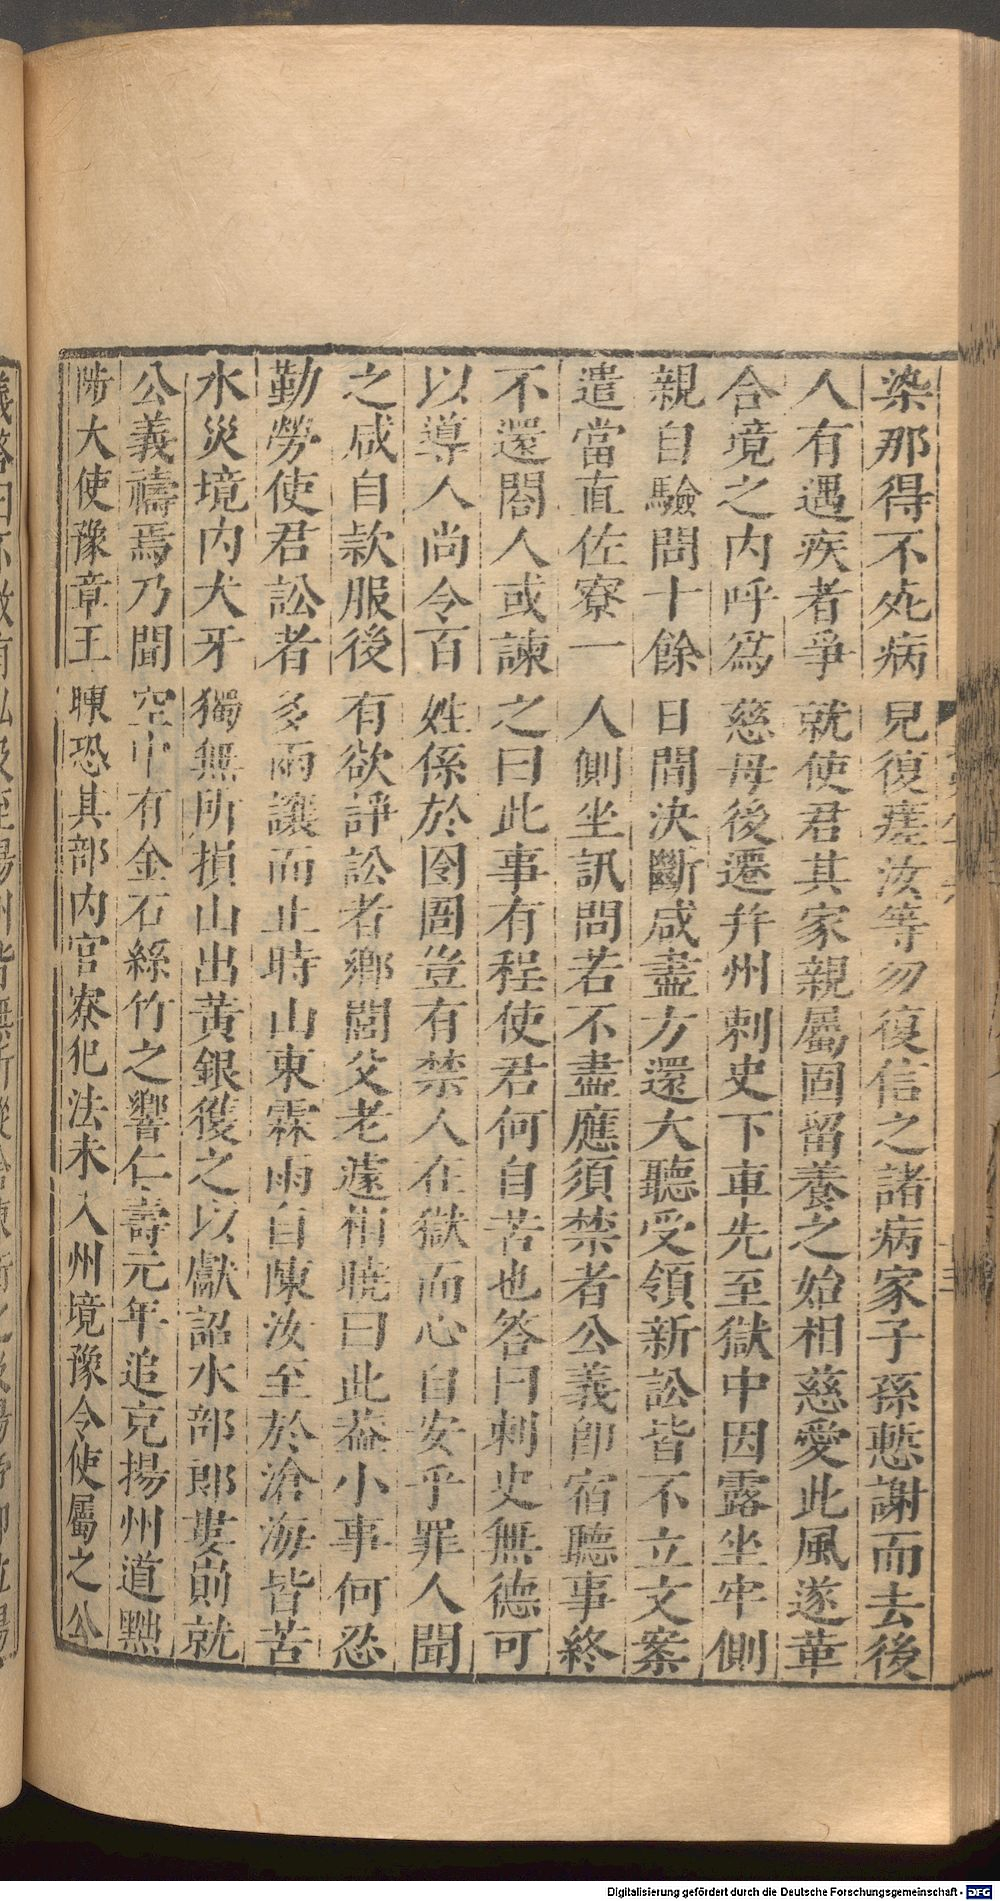 染那得不死病兒復差汝等勿復信之諸病家子孫慙謝而去後
人有遇疾者爭就使君其家親屬固留養之始相慈愛此風遂革
合境之內呼爲慈母後遷幷州刺史下車先至獄中因露坐牢側
親自驗問十餘日間決斷咸盡方還大聽受領新訟皆不立文案
遣當直佐寮一人側坐訊問若不盡應須禁者公義卽宿聽事終
不還閤人或諫之曰此事有程使君何自苦也答曰刺史無德可
以導人尚令百姓係於囹圄豈有禁人在獄而心自安乎罪人聞
之咸自款服後有欲諍訟者鄉閭父老遽相曉曰此葢小事何忍
勤勞使君訟者多兩讓而止時山東霖雨自陳汝至於滄海皆苦
水災境內犬牙獨無所損山出黃銀獲之以獻詔水部郎婁崱就
公義禱焉乃聞空中有金石絲竹之響仁壽元年追充揚州道黜
陟大使豫章王暕恐其部內官寮犯法未入州境豫令使屬之公
Digitalisierung gefördert durch die Deutsche Forschungsgemeinschaft - DFG